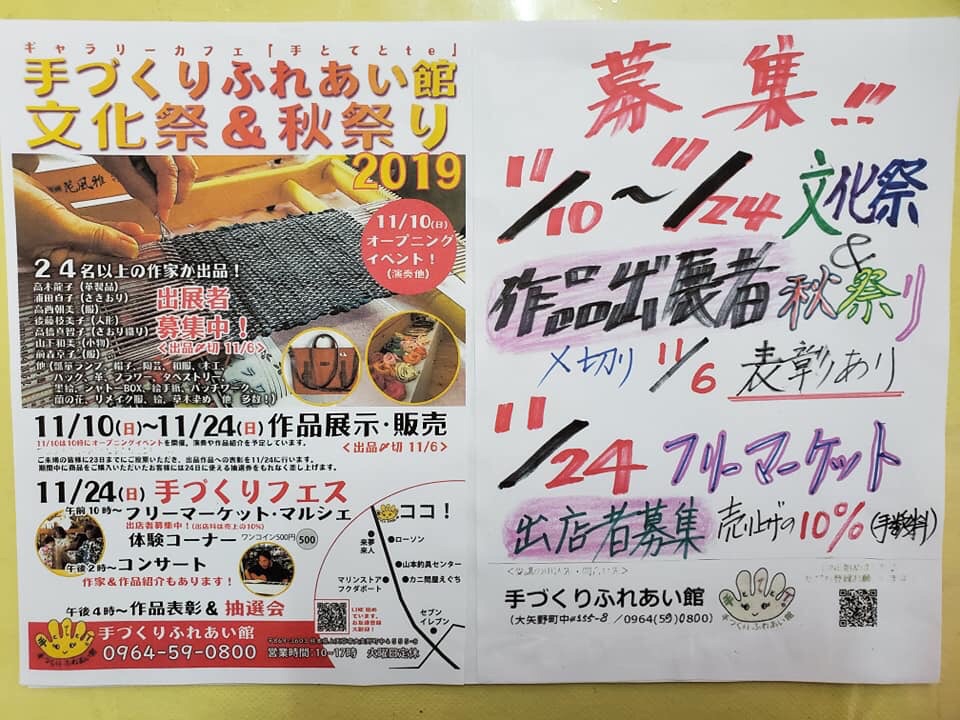 ギャラリーカフェ「手とてとte」
手づくりふれあい館
文化祭&秋祭り
2019
花風雅
11/10(日)
オープニング
イベント!
(演奏他)
24名以上の作家が出品!
高木龍子(革製品)
浦田直子(さきおり)
高西朝美(服)
後藤枝美子(人形)
高橋真智子(さをり織り)
山下和美(小物)
前森京子(服)
出展者
募集中!
<出品〆切 11/6>
バッグ、革、フラワー、タペストリー、
墨絵、シャドーBOX、絵手紙、パッチワーク、
蘭の花、リメイク服、絵、草木染め 他 多数!)
11/10(日)~11/24(日)作品展示・販売
11/10は10時にオープニングイベントを開催。演奏や作品紹介を予定しています。
<出品〆切 11/6>
ご来場の皆様に23日までにご投票いただき、出品作品への表彰を11/24に行います。
期間中に商品をご購入いただいたお客様には24日に使える抽選券をもれなく差し上げます。
11/24(日)手づくりフェス
午前10時~
フリーマーケット・マルシェ
出店者募集中!(出店料は売上の10%)
体験コーナー ワンコイン500円 500
午後2時~コンサート
作家&作品紹介もあります!
午後4時~作品表彰&抽選会
ココ!
来夢
来人
ローソン
山本釣具センター
マリンストア
フクダポート
カニ問屋えぐち
セブン
イレブン
LINE 始め
ています。
お友達登録
大歓迎!
手づくりふれあい館
手づくりふれあい館
0964-59-0800
営業時間:10~17時 火曜日定休
募集!!
11/10~11/24 文化祭
&
作品出展者 秋祭り
〆切り 11/6 表彰あり
11/24 フリーマーケット
出店者募集 売り上げの10%(手数料)
手づくりふれあい館
(大矢野町中4555-8 /0964(59)0800)
手づくりふれあい館